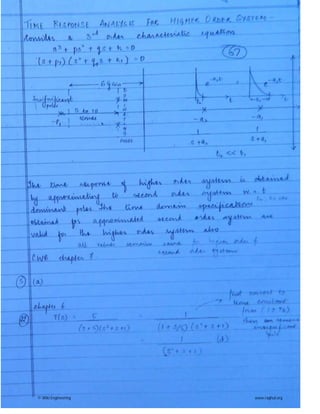 TIME RESPONSE ANALYSIS FOR HIGHER ORDER SYSTEM -
Consider a 3rd order characteristic equation
s³ + ps² + qs + r = 0
(s + p₁) (s² + q₁s + r₁) = 0
67
Insignificant
poles
5 to 10
times
-P₁
poles
e^-a₁t
e^-a₂t
t
t
-a₁
-a₂
1
1
s+a₁
s+a₂
t₁ << t₂
The time response of higher order system is obtained
by approximating to second order system w.r.t
dominant poles. The time domain specifications
obtained for approximated second order system are
valid for the higher order system also
all values remains same for higher order &
second order systems
CWB chapter 7
5 (a)
chapter 6
T(s) = 5
(s+5)(s²+s+1)
= 1
(1+s/5)(s²+s+1)
= 1
(s²+s+1)
first convert to
time constant
form (1+Ts)
then can remove
insignificant
pole
© Wiki Engineering
www.raghul.org